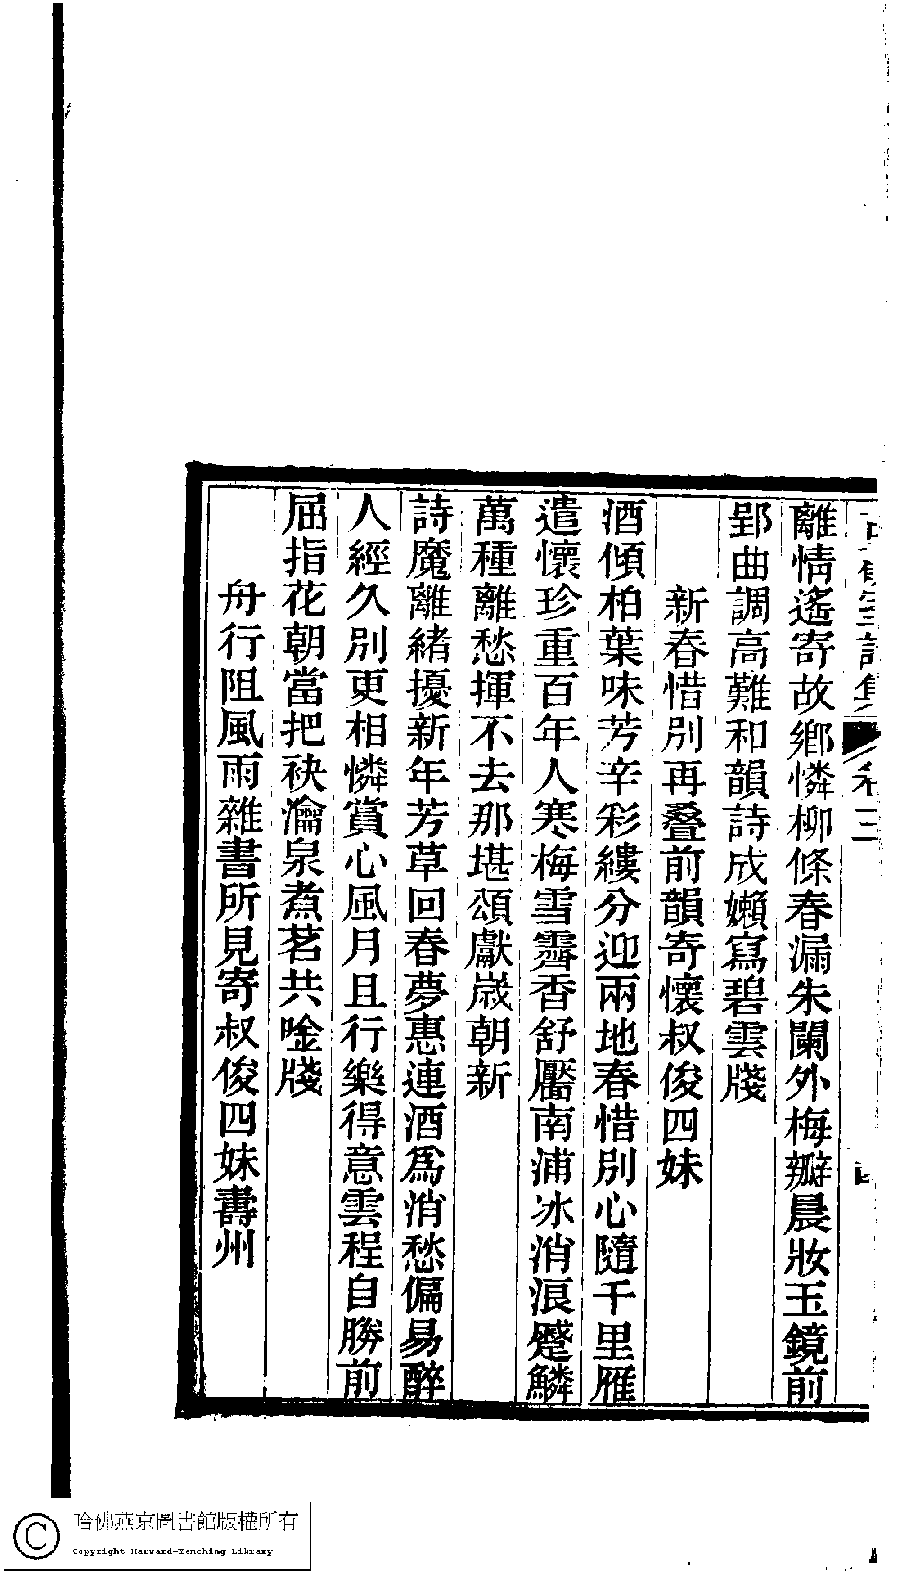 離情遙寄故鄉憐柳條春漏朱闌外梅瓣晨妝玉鏡前
郢曲調高難和韻詩成嬾寫碧雲牋
新春惜別再疊前韻寄懷叔俊四妹
酒傾柏葉味芳辛彩縷分迎兩地春惜別心隨千里雁
遣懷珍重百年人寒梅雪霽香舒靨南浦冰消浪蹙鱗
萬種離愁揮不去那堪頌獻歲朝新
詩魔離緒擾新年芳草回春夢惠連酒爲消愁偏易醉
人經久別更相憐賞心風月且行樂得意雲程自勝前
屈指花朝當把袂瀹泉煮茗共唫牋
舟行阻風雨雜書所見寄叔俊四妹壽州
哈佛燕京圖書館版權所有
Copyright Harvard-Yenching Library